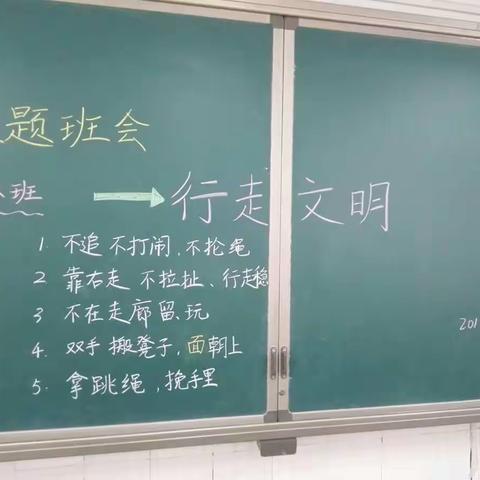 题班会
班 → 行走文明
1. 不追 不打闹、不抡绳
2 靠右走 不拉扯、行走稳
3 不在走廊留、玩
4. 双手搬凳子,面朝上
5. 拿跳绳,挽手里
201